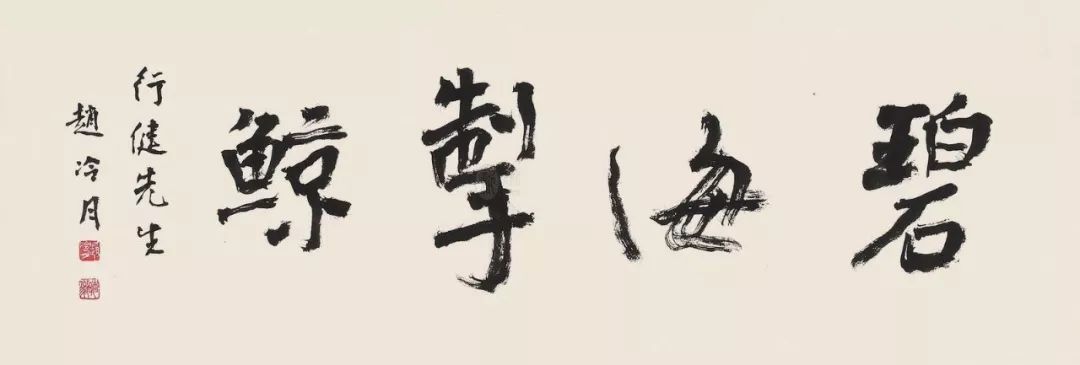 碧海掣鲸
行健先生
趙冷月